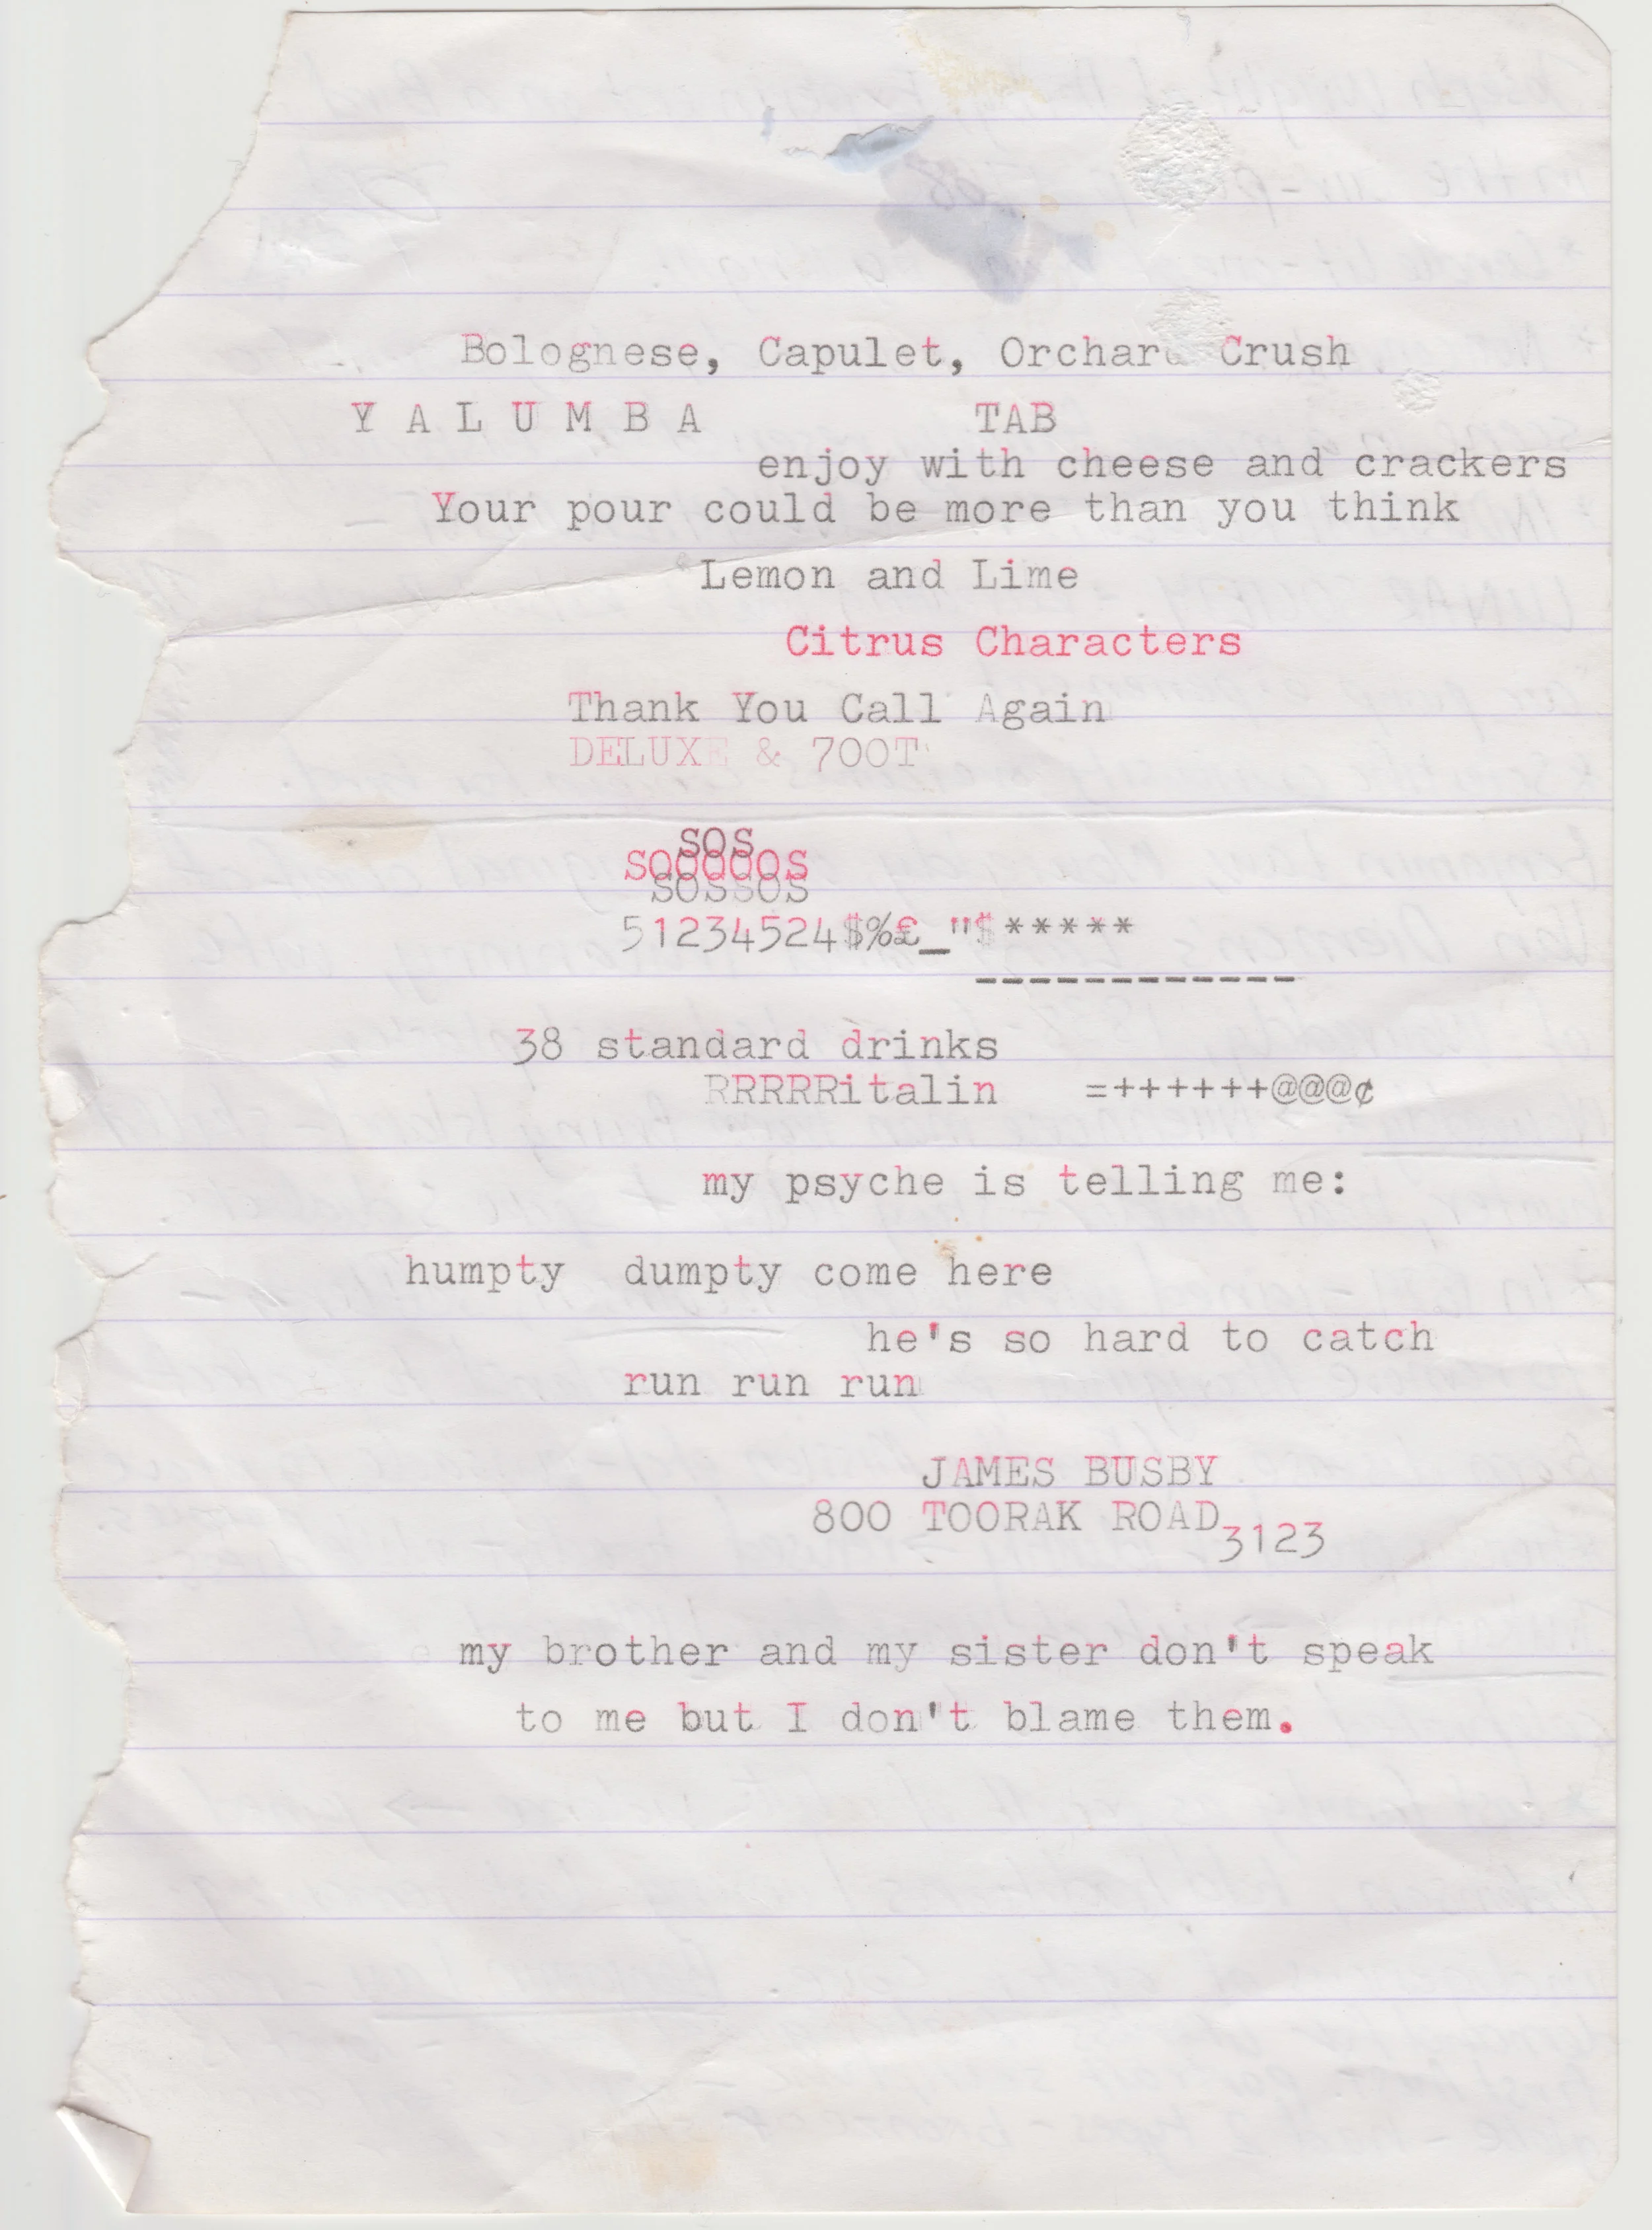 Bolognese, Capulet, Orchard Crush
Y A L U M B A TAB
enjoy with cheese and crackers
Your pour could be more than you think
Lemon and Lime
Citrus Characters
Thank You Call Again
DELUXE & 700T
SOS
SOOOOOS
SOSSOS
51234524$%£_"$*****
------------
38 standard drinks
RRRRRitalin =++++++@@@¢
my psyche is telling me:
humpty dumpty come here
he's so hard to catch
run run run
JAMES BUSBY
800 TOORAK ROAD
3123
my brother and my sister don't speak
to me but I don't blame them.